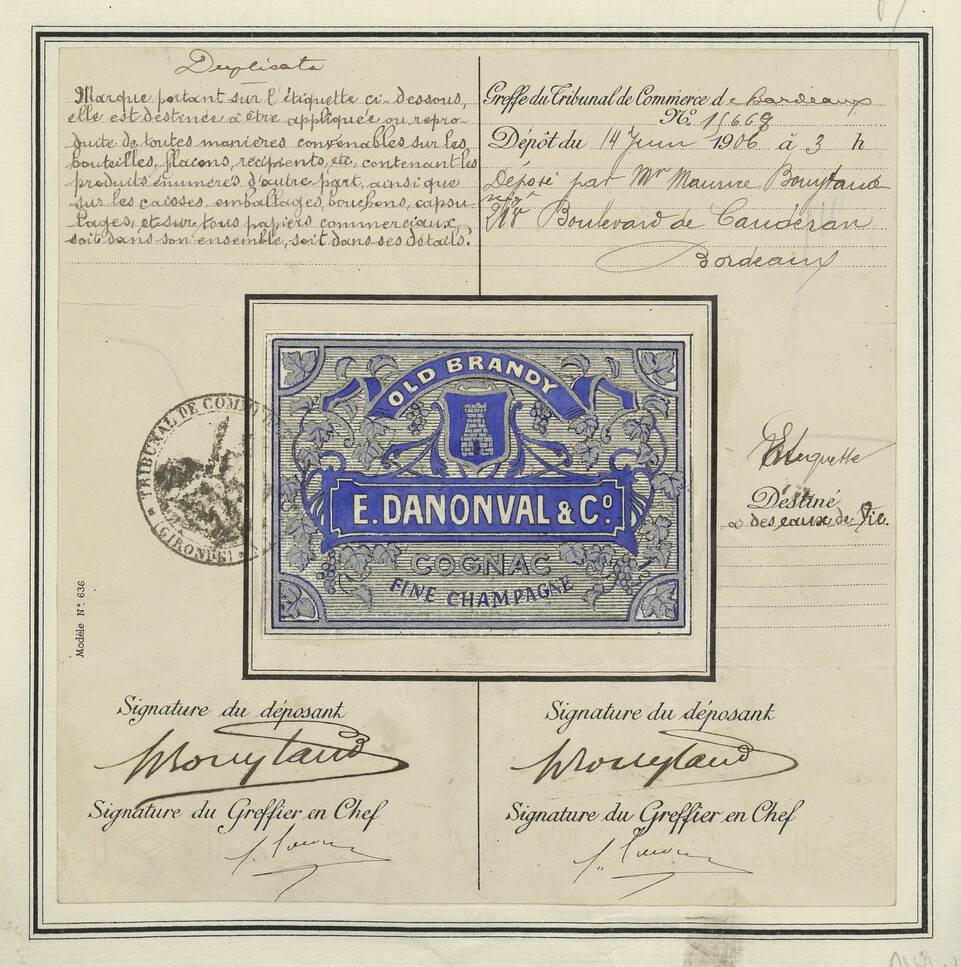 Duplicata
Marque portant sur l'étiquette ci-dessous,
elle est destinée à être appliquée ou repro-
duite de toutes manières convenables sur les
bouteilles, flacons, récipients, etc, contenant les
produits énumérés d'autre part, ainsi que
sur les caisses, emballages, bouchons, capsu-
lages, et sur tous papiers commerciaux,
soit dans son ensemble, soit dans ses détails.
Greffe du Tribunal de Commerce de Bordeaux
No. 15668
Dépôt du 14 Juin 1906 à 3 h
Déposé par Mr Maurice Bouytaud
Boulevard de Caudéran
Bordeaux
TRIBUNAL DE COMM
(GIRONDE)
OLD BRANDY
E. DANONVAL & Co.
COGNAC
FINE CHAMPAGNE
Etiquette
Destiné
à des eaux de Vie.
Modèle No. 636
Signature du déposant
Bouytaud
Signature du Greffier en Chef
Signature du déposant
Bouytaud
Signature du Greffier en Chef